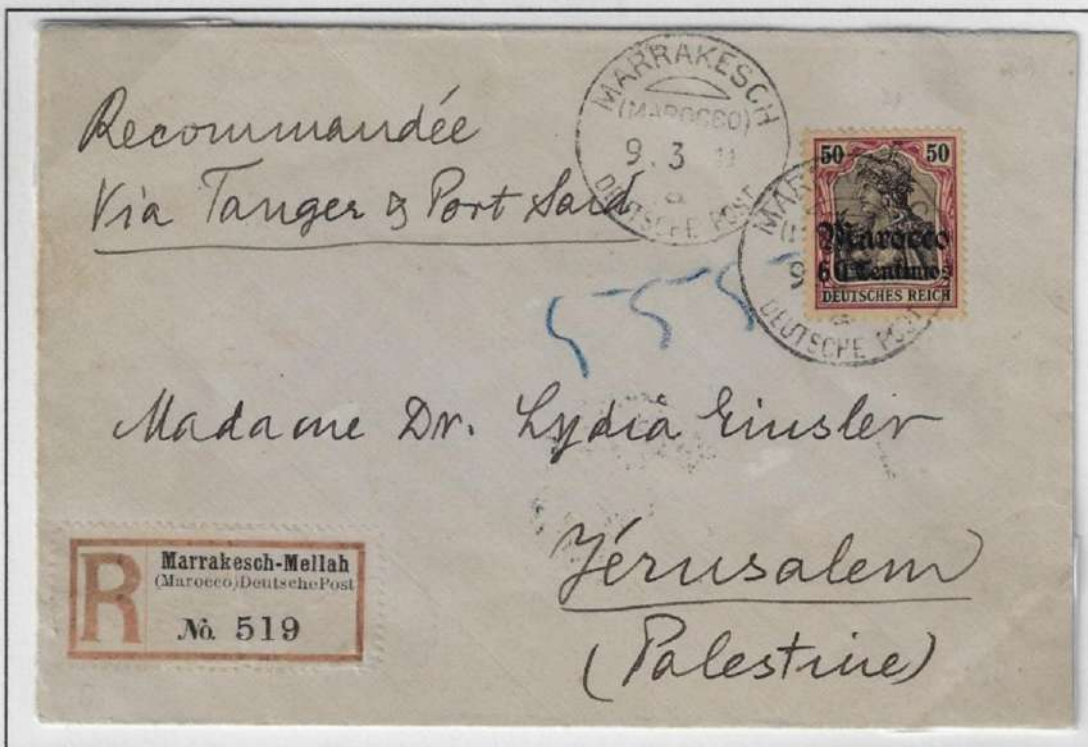 Recommandée
Via Tanger & Port Said
MARRAKESCH
(MAROCCO)
9.3 11
a
DEUTSCHE POST
50 50
Marocco
60 Centimos
DEUTSCHES REICH
MAR
9
a
DEUTSCHE POST
Madame Dr. Lydia Einsler
Jérusalem
(Palestine)
R
Marrakesch-Mellah
(Marocco) Deutsche Post
No. 519